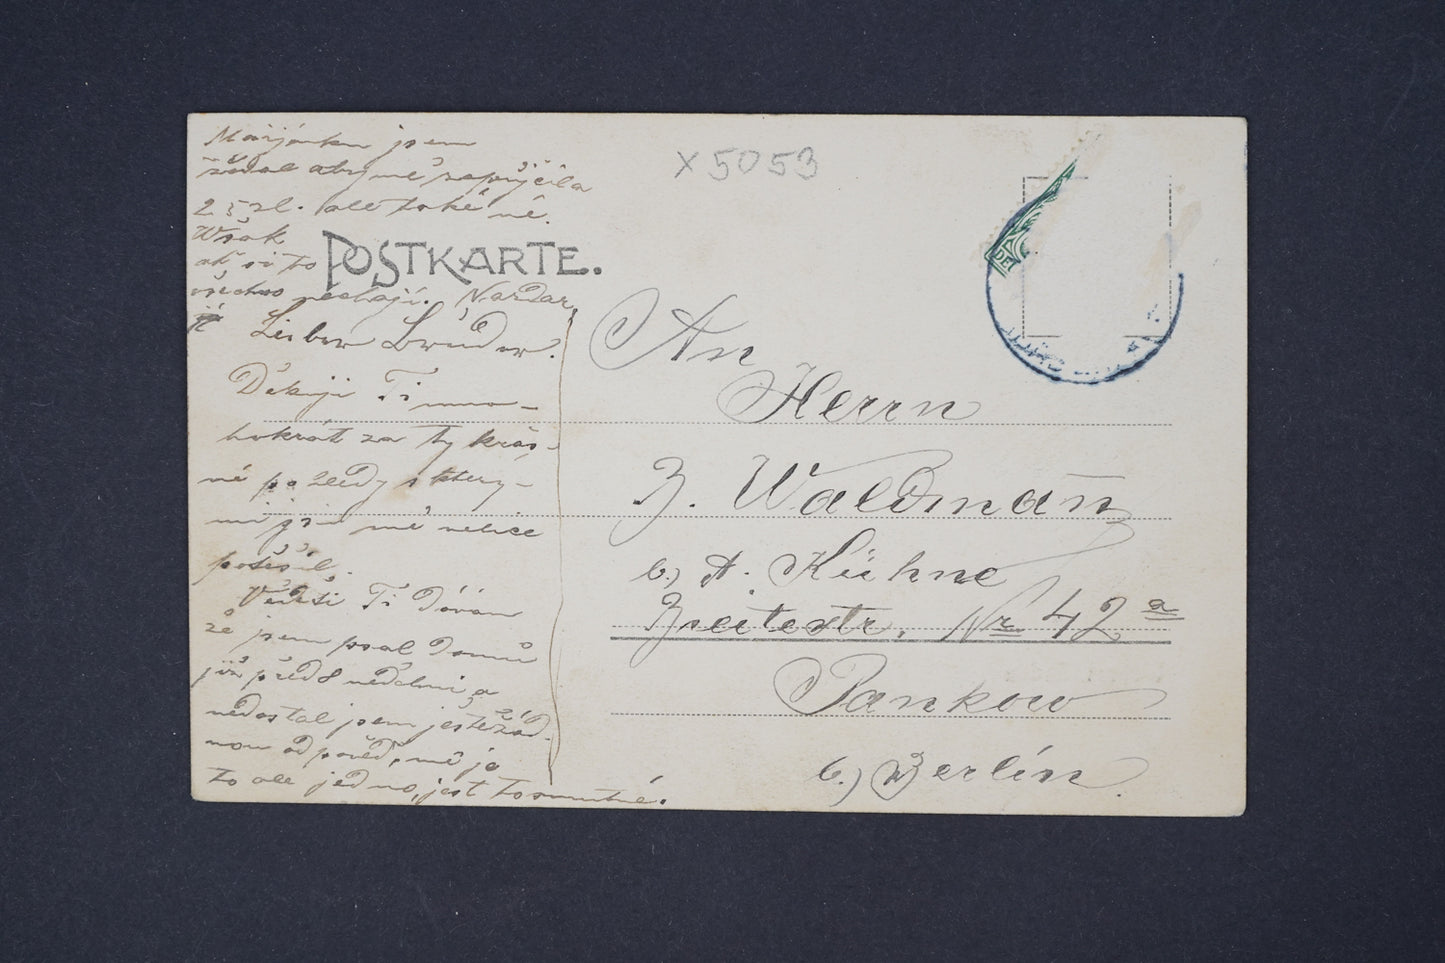 Marjánku jsem
žádal aby mě zapůjčila
25 zl. ale také né.
Wšak
ať si to
všechno nechají. Nazdar
X 5053
POSTKARTE.
DE
Lieber Bruder.
Děkuji Ti mno-
hokrát za ty krás-
né pohledy s který-
mi jsi mě velice
potěšil.
Vědět Ti dávám
že jsem psal domů
již před 8 nedělmi a
nedostal jsem ještě žád-
nou odpověď, mě je
to ale jedno, jest to smutné.
An
Herrn
Z. Waldmañ
b) A. Kühne
Breitestr. Nr 42 a
Pankow
b.) Berlin.